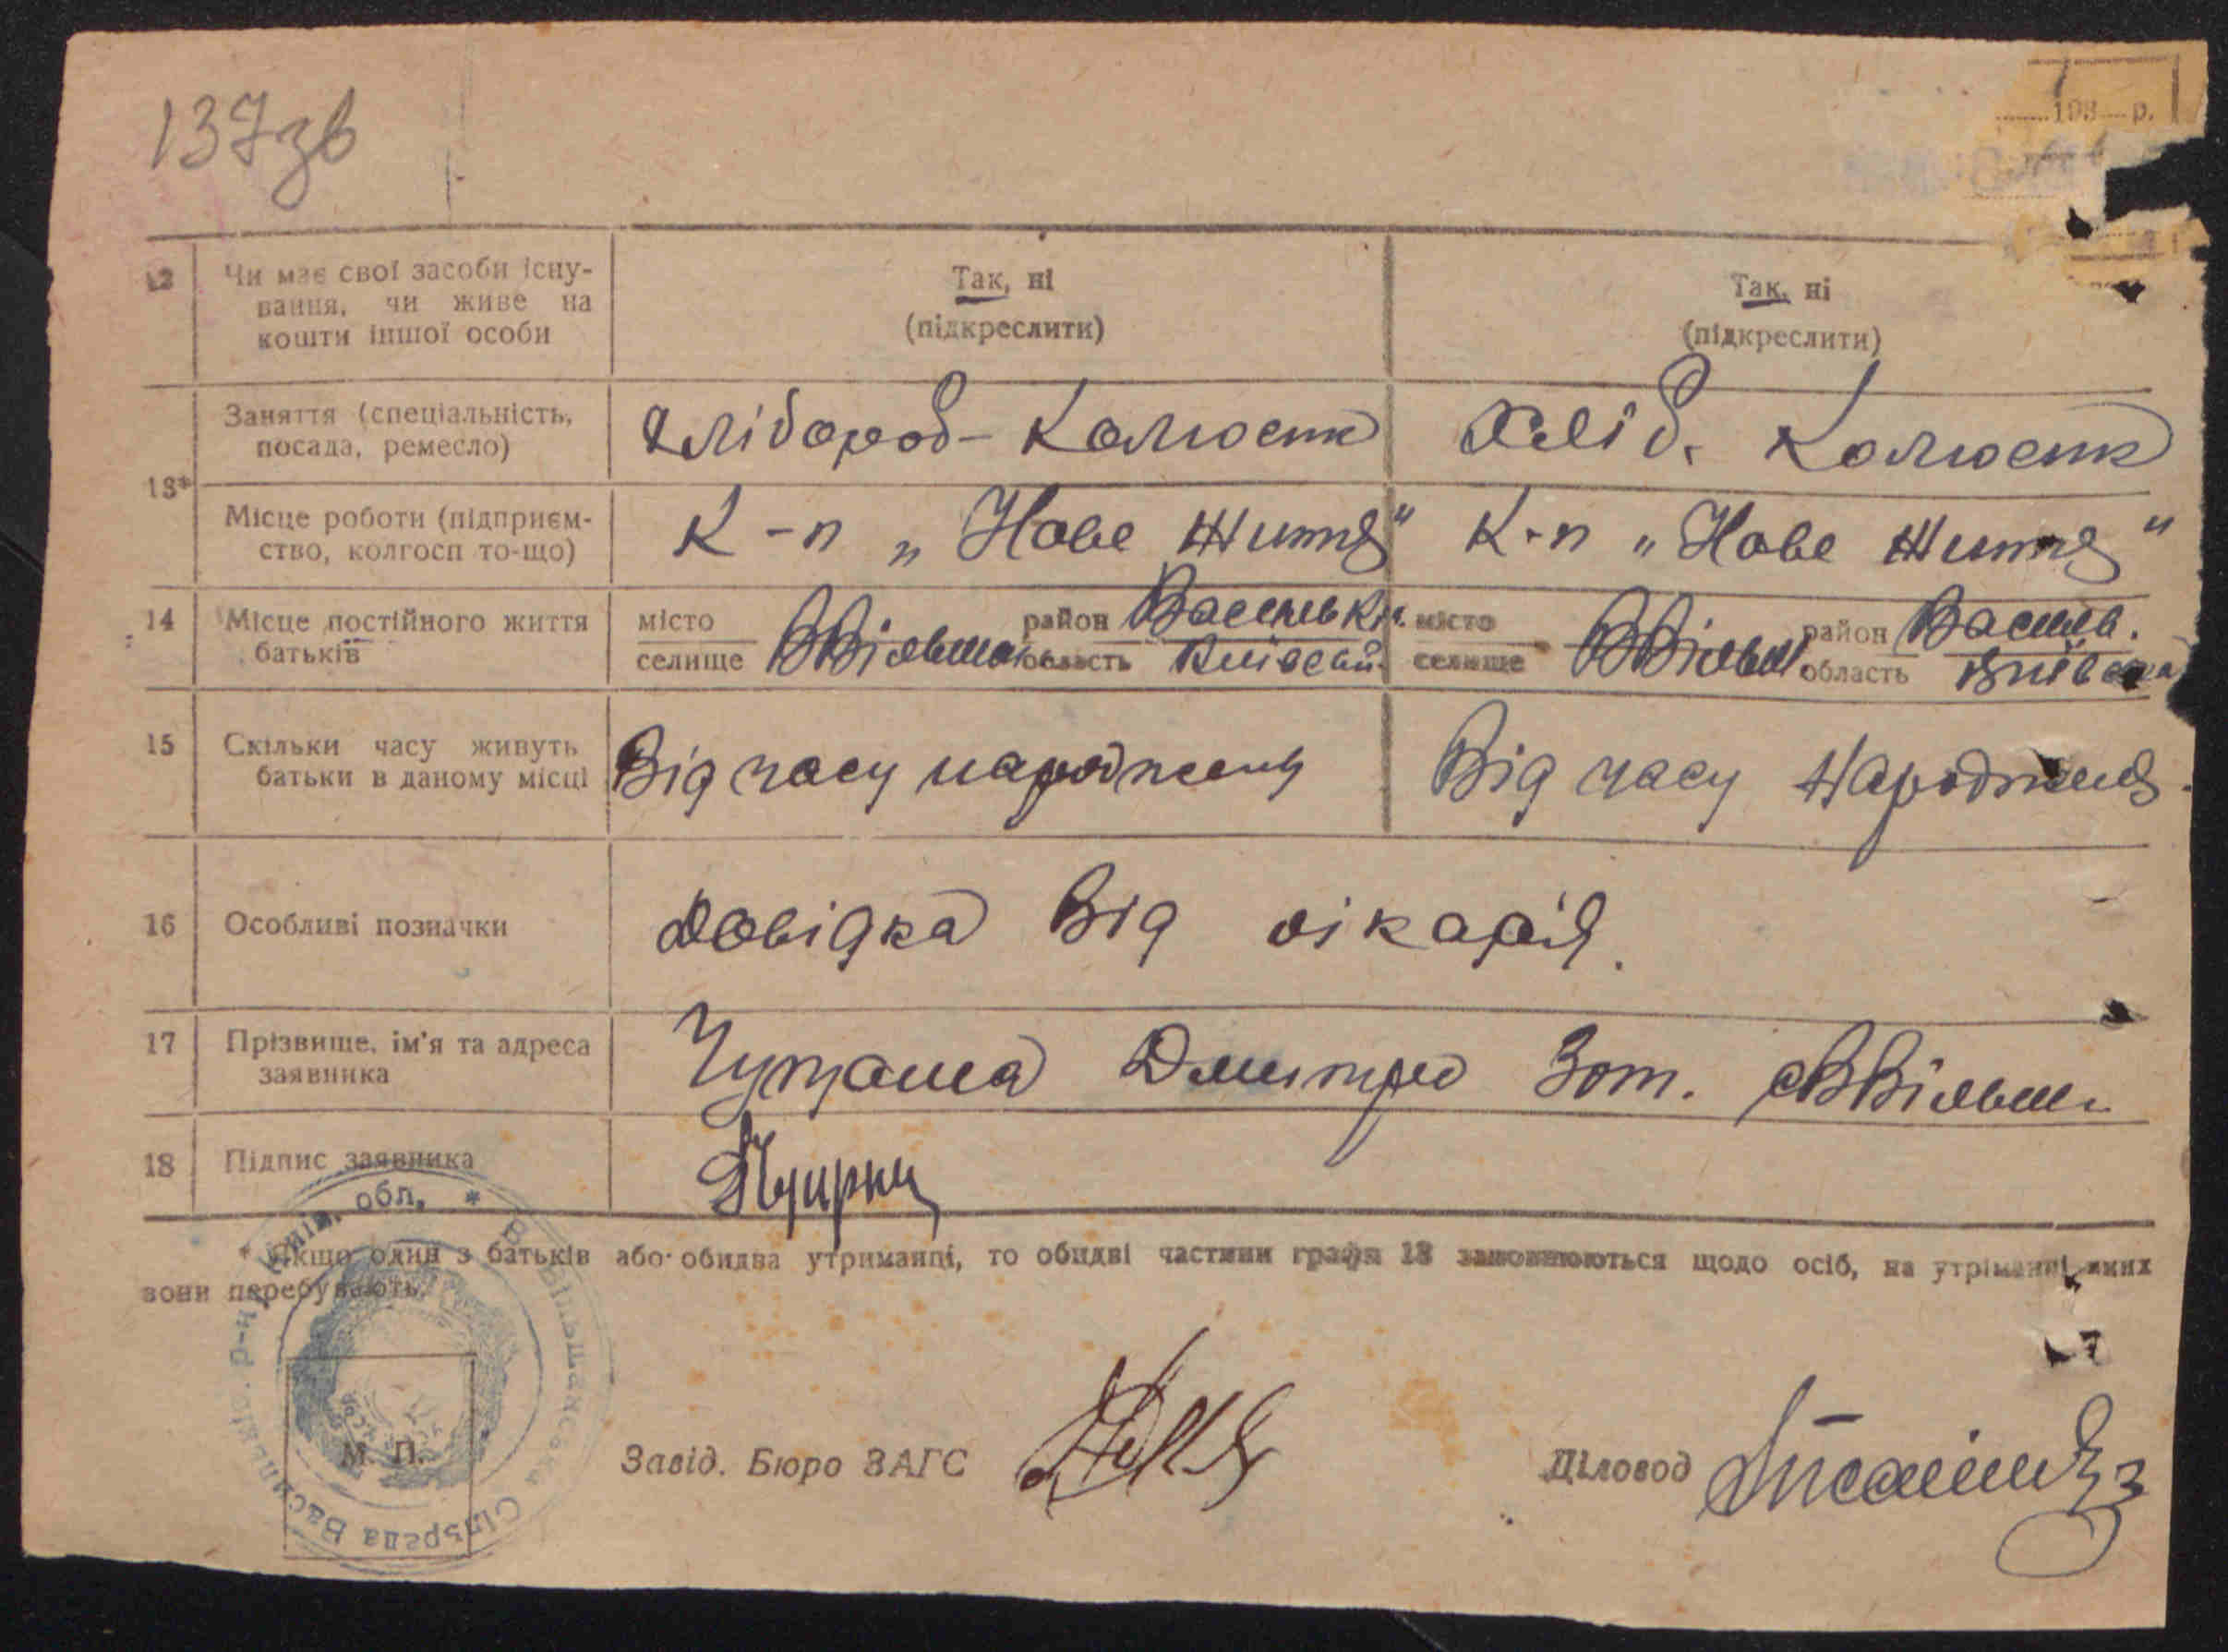 137зв
193 р.
12 Чи має свої засоби існу-
вання, чи живе на
кошти іншої особи
Так, ні
(підкреслити)
Так, ні
(підкреслити)
13*
Заняття (спеціальність,
посада, ремесло)
Хлібороб-Колгоспн
Хліб. Колгоспн
Місце роботи (підприєм-
ство, колгосп то-що)
К-п „Нове Життя"
К-п „Нове Життя"
14 Місце постійного життя
батьків
місто
селище
ВВільшан
район Васильк
область Київськ
місто
селище
ВВільш
район Васильк.
область Київська
15 Скільки часу живуть
батьки в даному місці
Від часу народження
Від часу Народження
16 Особливі позначки
Довідка Від лікаря.
17 Прізвище, ім'я та адреса
заявника
Дмитро Зот. с ВВільш
18 Підпис заявника
* Якщо один з батьків або обидва утриманці, то обидві частини графи 13 заповнюються щодо осіб, на утриманні яких
вони перебувають.
В Вільшанська Сільрада Васильків. р-н Київ. обл. *
М. П.
Завід. Бюро ЗАГС
Діловод